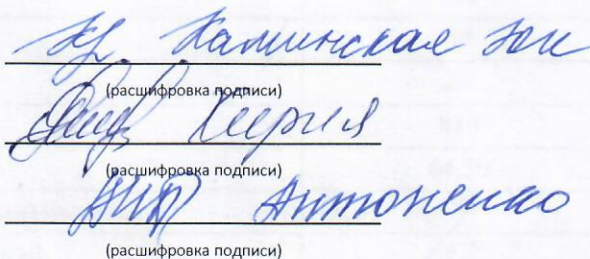 Каминская
(расшифровка подписи)
Кирия
(расшифровка подписи)
Антоненко
(расшифровка подписи)